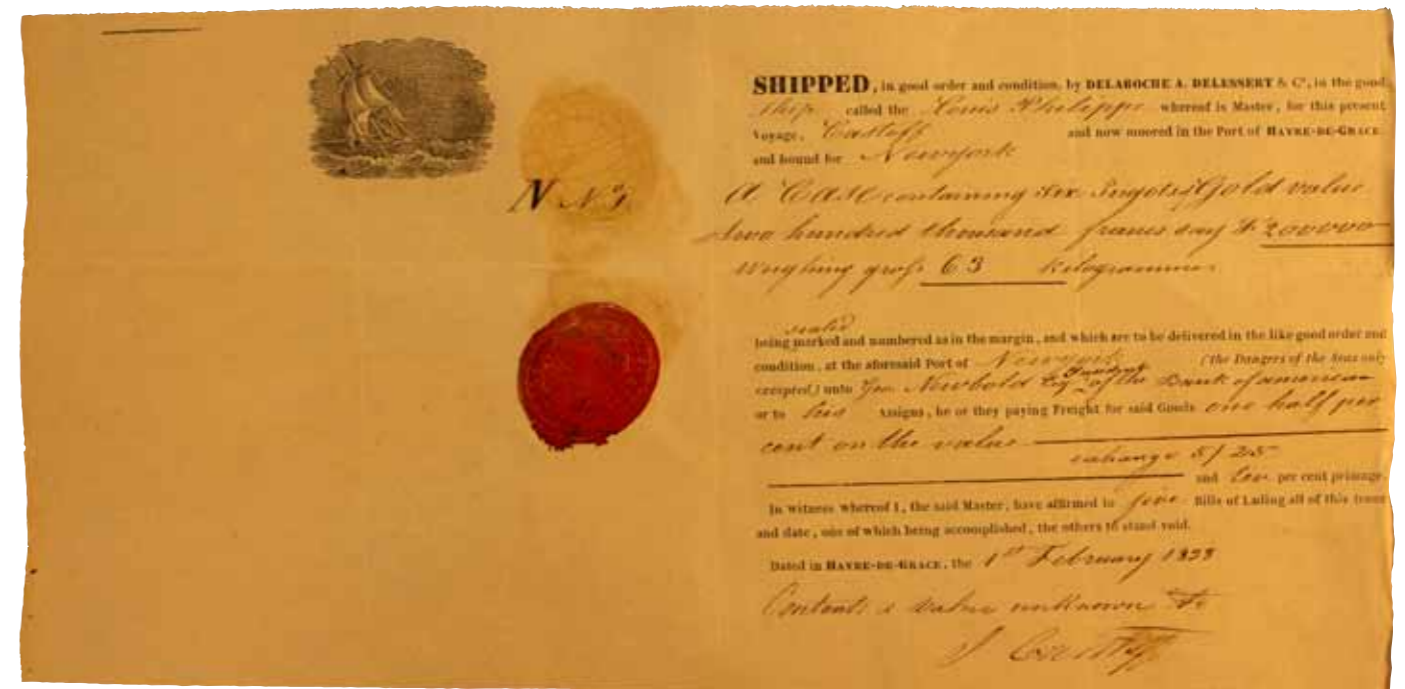 N Nº 1
SHIPPED, in good order and condition, by DELAROCHE A. DELESSERT & Cº, in the good
Ship called the Louis Philippe whereof is Master, for this present
Voyage, Casteff and now moored in the Port of HAVRE-DE-GRACE
and bound for Newyork
A Case containing six Ingots Gold value
two hundred thousand francs say F 200000
Weighing gross 63 Kilogrammes
sealed
being marked and numbered as in the margin, and which are to be delivered in the like good order and
condition, at the aforesaid Port of Newyork (the Dangers of the Seas only
President
excepted) unto Geo. Newbold Esq of the Bank of america
or to his Assigns, he or they paying Freight for said Goods one half per
cent on the value
exchange 5/25
and ten per cent primage.
In witness whereof I, the said Master, have affirmed to five Bills of Lading all of this tenor
and date, one of which being accomplished, the others to stand void.
Dated in HAVRE-DE-GRACE, the 1st February 1838
Contents & value unknown to
J